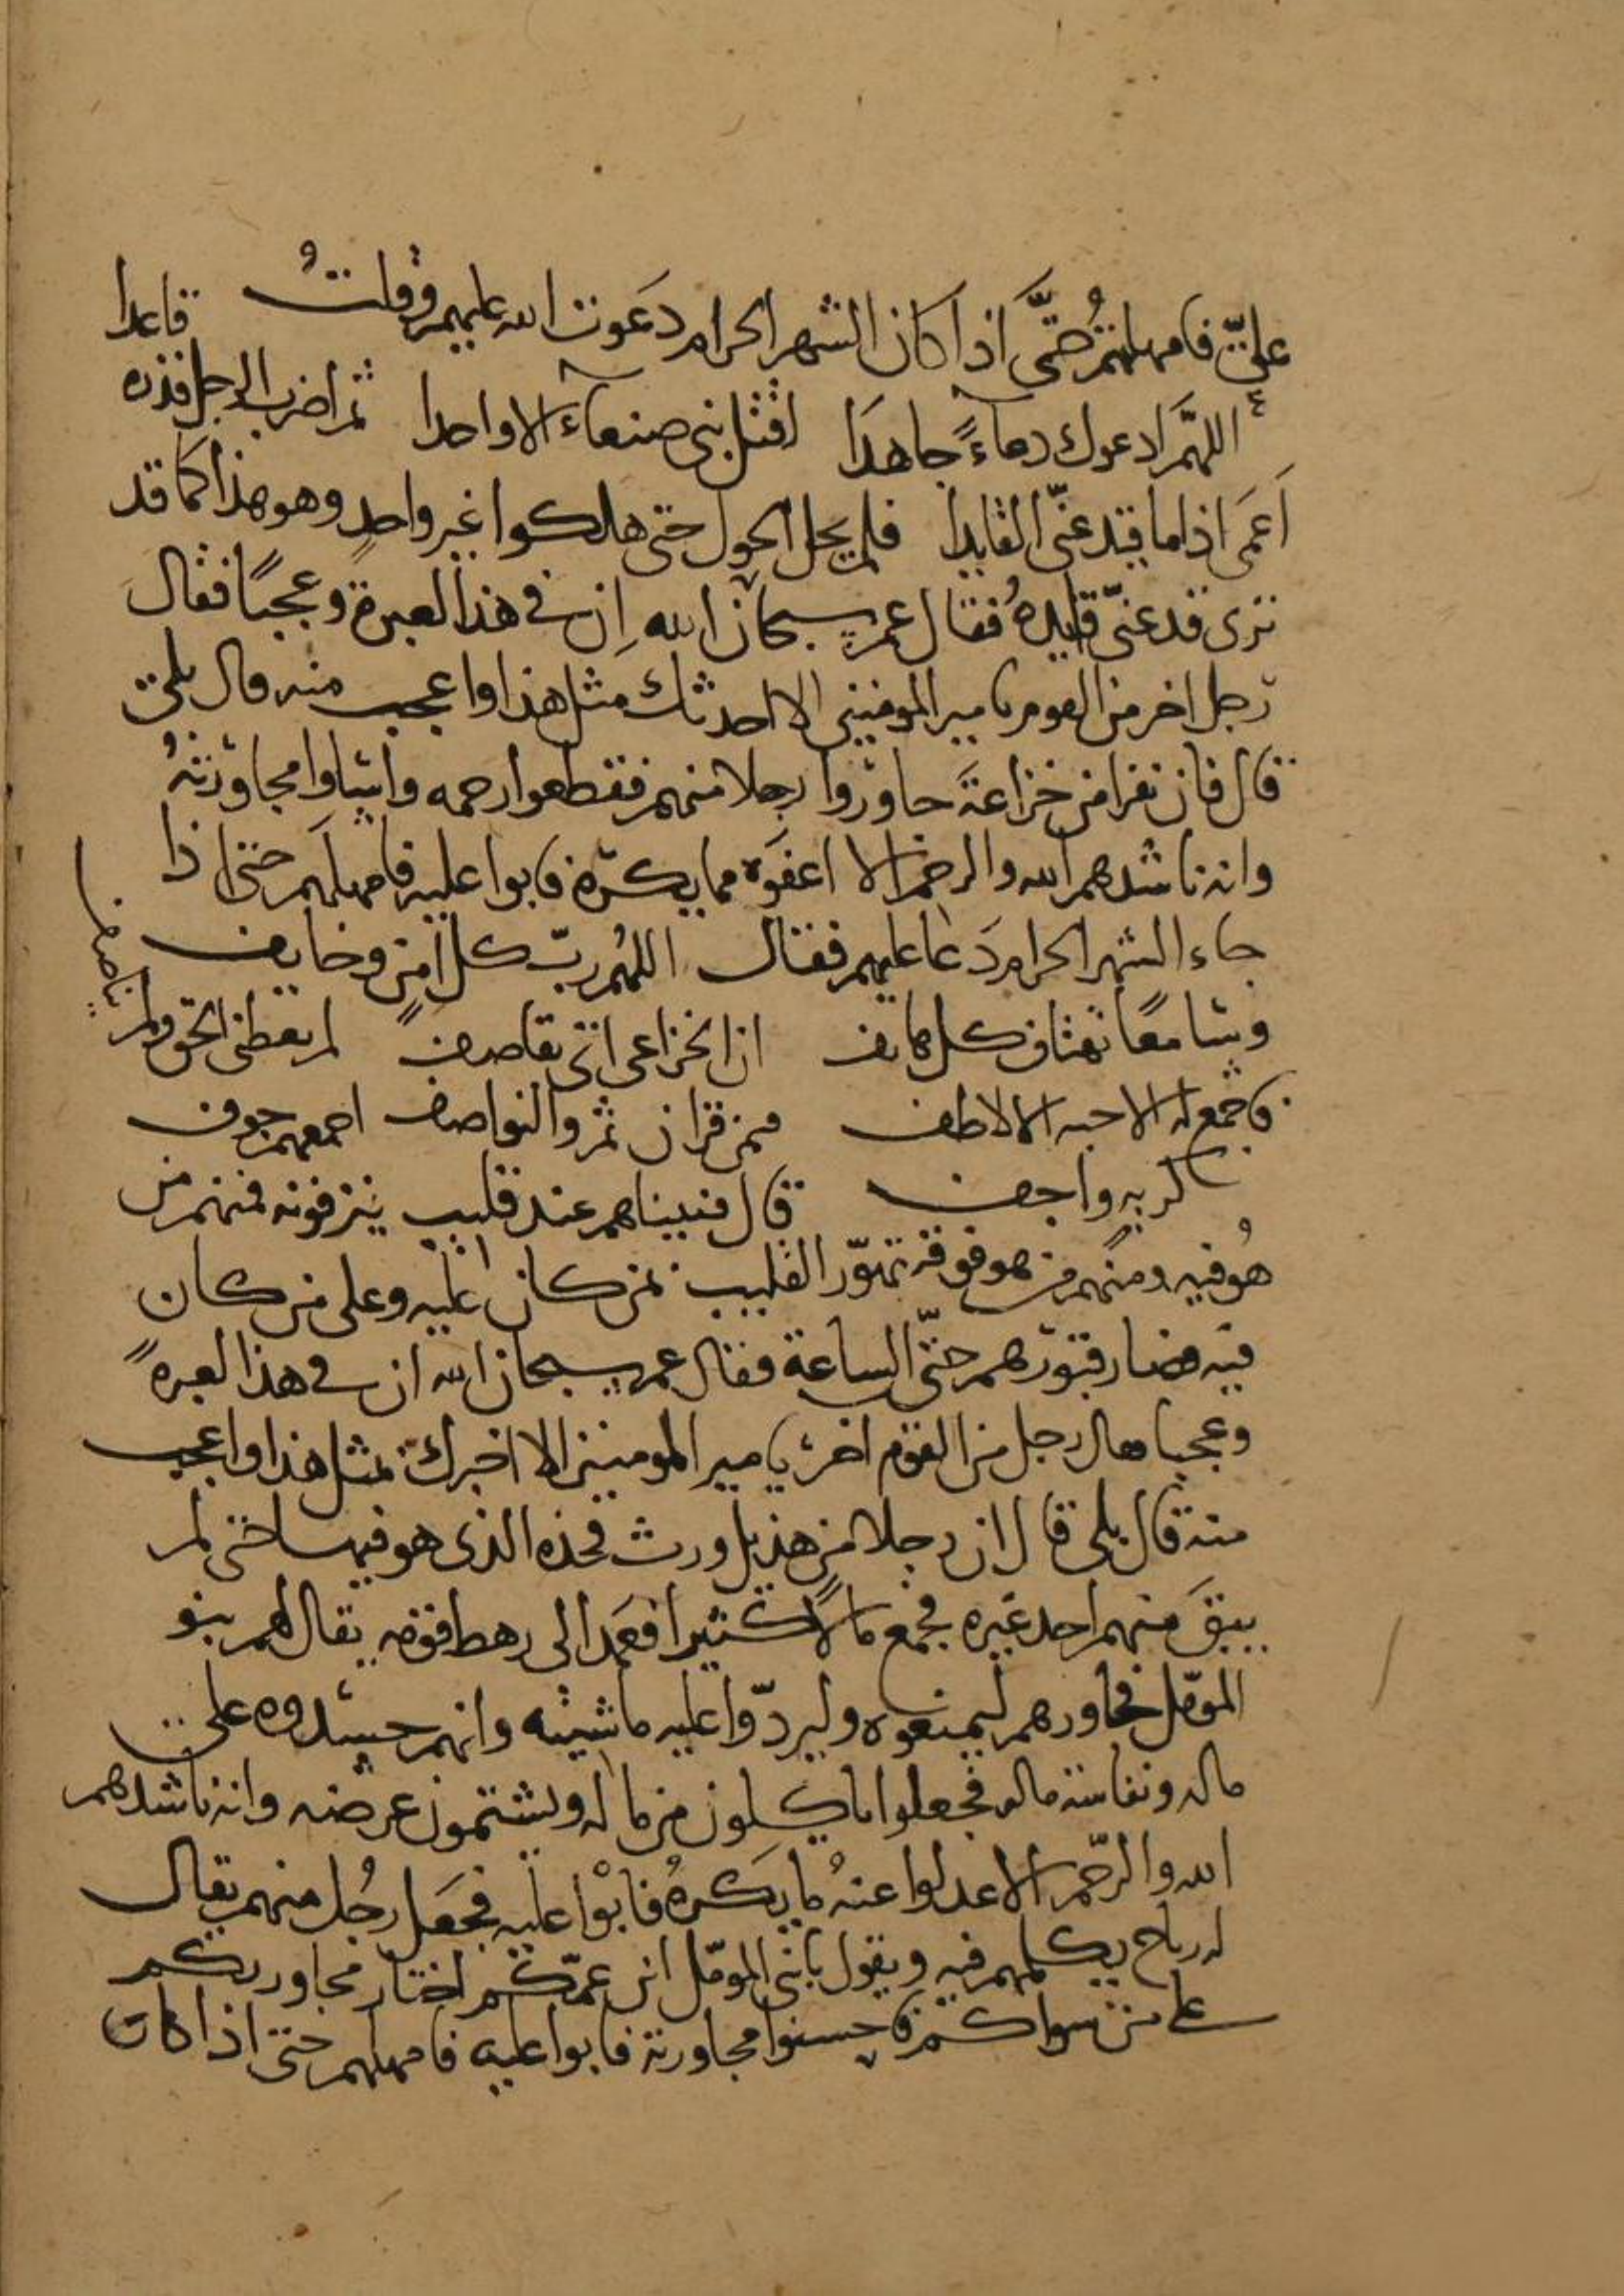 عليّ فامهلتهم حتَّى اذا كان الشهر الحرام دَعوت الله عليهم وقلتُ
اللهمّ ادعوك دعاءً جاهدَا اقتل بنى صنعاء الا واحدا ثم اضرب الرجل فذره قاعدا
اَعمَى اذا ما قيد عنّى القايدا فلم يحل الحول حتى هلكوا غير واحدٍ وهو هذا كما قد
ترى قد عنّى قايدهُ فقال عمر سبحان الله اِن في هذا لعبرة وعجبًا فقال
رجل اخر من القوم يا مير المومنين الا احدثك مثل هذا واعجب منه قال بلى
قال فان نفرا من خزاعةَ جاوَروا رجلا منهم فقطعوا رحمه واسَاوا مجاوَرتهُ
وانه ناشدهم الله والرحم الا اعفَوه مما يكره فابوا عليه فامهلهم حتى اذا
جاء الشهر الحرام دَعا عليهم فقال اللهُم ربّ كل امنٍ وخايف
وسامعًا تهتاف كل هاتف ان الخزاعى ابى تقاصف لم يعطنى الحق ولم يناصف
فاجمع له الاحبه الالاطف من قران ثم والنواصف اجمعهم جوف
كربه واجف قال فبيناهم عند قليب ينزفونه فمنهم من
هُو فيه ومنهم من هو فوقه تهوّر القليب بمن كان عليه وعلى من كان
فيه فصار قبورَهم حتّى الساعة فقال عمر سبحان الله ان في هذا لعبرهً
وعجبا فقال رجل من القوم اخر يا مير المومنين الا اخبرك بمثل هذا واعجب
منه قال بلى قال ان رجلا من هذيل ورث فخذه الذى هو فيها حتى لم
يبقَ منهم احد غيره فجمع مالًا كثيرا فعَمد الى رهط قومه يقال لهم بنو
المومّل فجاورهم ليمنعوه وليردّوا عليه ماشيته وانهم حسدوه على
ماله ونفاسة ماله فجعلوا ياكلون من ماله ويشتمون عرضه وانه ناشدهم
الله والرّحم الا عدلوا عنهُ ما يكرهُ فابَوْا عليه فجعَل رجُل منهم يقال
له رباح يكلمهم فيه ويقول يا بنى المومّل ابن عمّكم اختار مجاورتكم
على من سواكم فاحسنوا مجاورته فابوا عليه فامهلهم حتى اذا كان